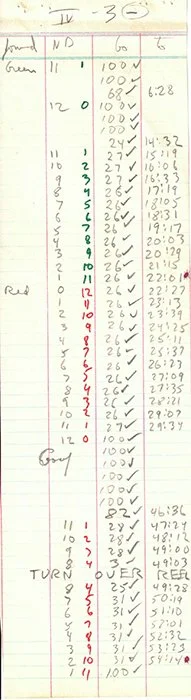 IV - 3 -
found N D Go to
Green 11 1 100 ✓
100 ✓
68 ✓ 6:28
12 0 100 ✓
100 ✓
100 ✓
24 ✓ 14:32
11 1 27 ✓ 15:19
10 2 27 ✓ 16:06
9 3 27 ✓ 16:33
8 4 26 ✓ 17:19
7 5 26 ✓ 18:05
6 6 26 ✓ 18:31
5 7 26 ✓ 19:17
4 8 26 ✓ 20:03
3 9 26 ✓ 20:29
2 10 26 ✓ 21:15
1 11 26 ✓
Red 0 12 26 ✓ 22:27
1 11 26 ✓ 23:13
2 10 26 ✓ 23:39
3 9 26 ✓ 24:25
4 8 26 ✓ 25:11
5 7 26 ✓ 25:37
6 6 26 ✓ 26:23
7 5 26 ✓ 27:09
8 4 26 ✓ 27:35
9 3 26 ✓ 28:21
10 2 26 ✓ 29:07
11 1 27 ✓ 29:34
12 0 100 ✓
100 ✓
100 ✓
100 ✓
100 ✓
100 ✓
82 ✓ 46:36
11 1 28 ✓ 47:24
10 2 28 ✓ 48:12
9 3 28 ✓ 49:00
8 4 3 ✓ 49:03
TURN OVER REEL
8 4 25 ✓ 49:28
7 5 31 ✓ 50:19
6 6 31 ✓ 51:10
5 7 31 ✓ 52:01
4 8 31 ✓ 52:32
3 9 31 ✓ 53:23
2 10 31 ✓ 54:14
1 11 100 ✓